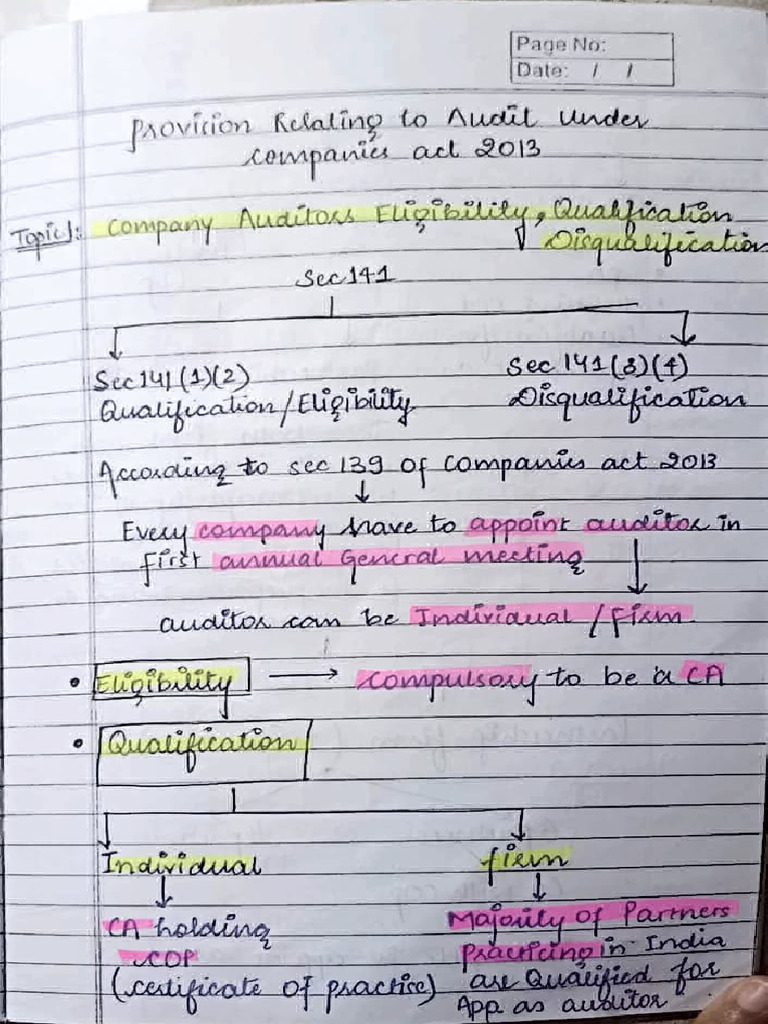 Page No:
Date: / /
Provision Relating to Audit Under
companies act 2013
Topic): Company Auditors Eligibility, Qualification
Disqualification
Sec 141
Sec 141 (1)(2)
Qualification/Eligibility
Sec 141 (3)(4)
Disqualification
According to sec 139 of companies act 2013
Every company have to appoint auditor in
first annual General meeting
auditor can be Individual / Firm
• Eligibility → compulsory to be a CA
• Qualification
Individual
firm
CA holding
COP
(certificate of practice)
Majority of Partners
Practicing in India
are Qualified for
App as auditor